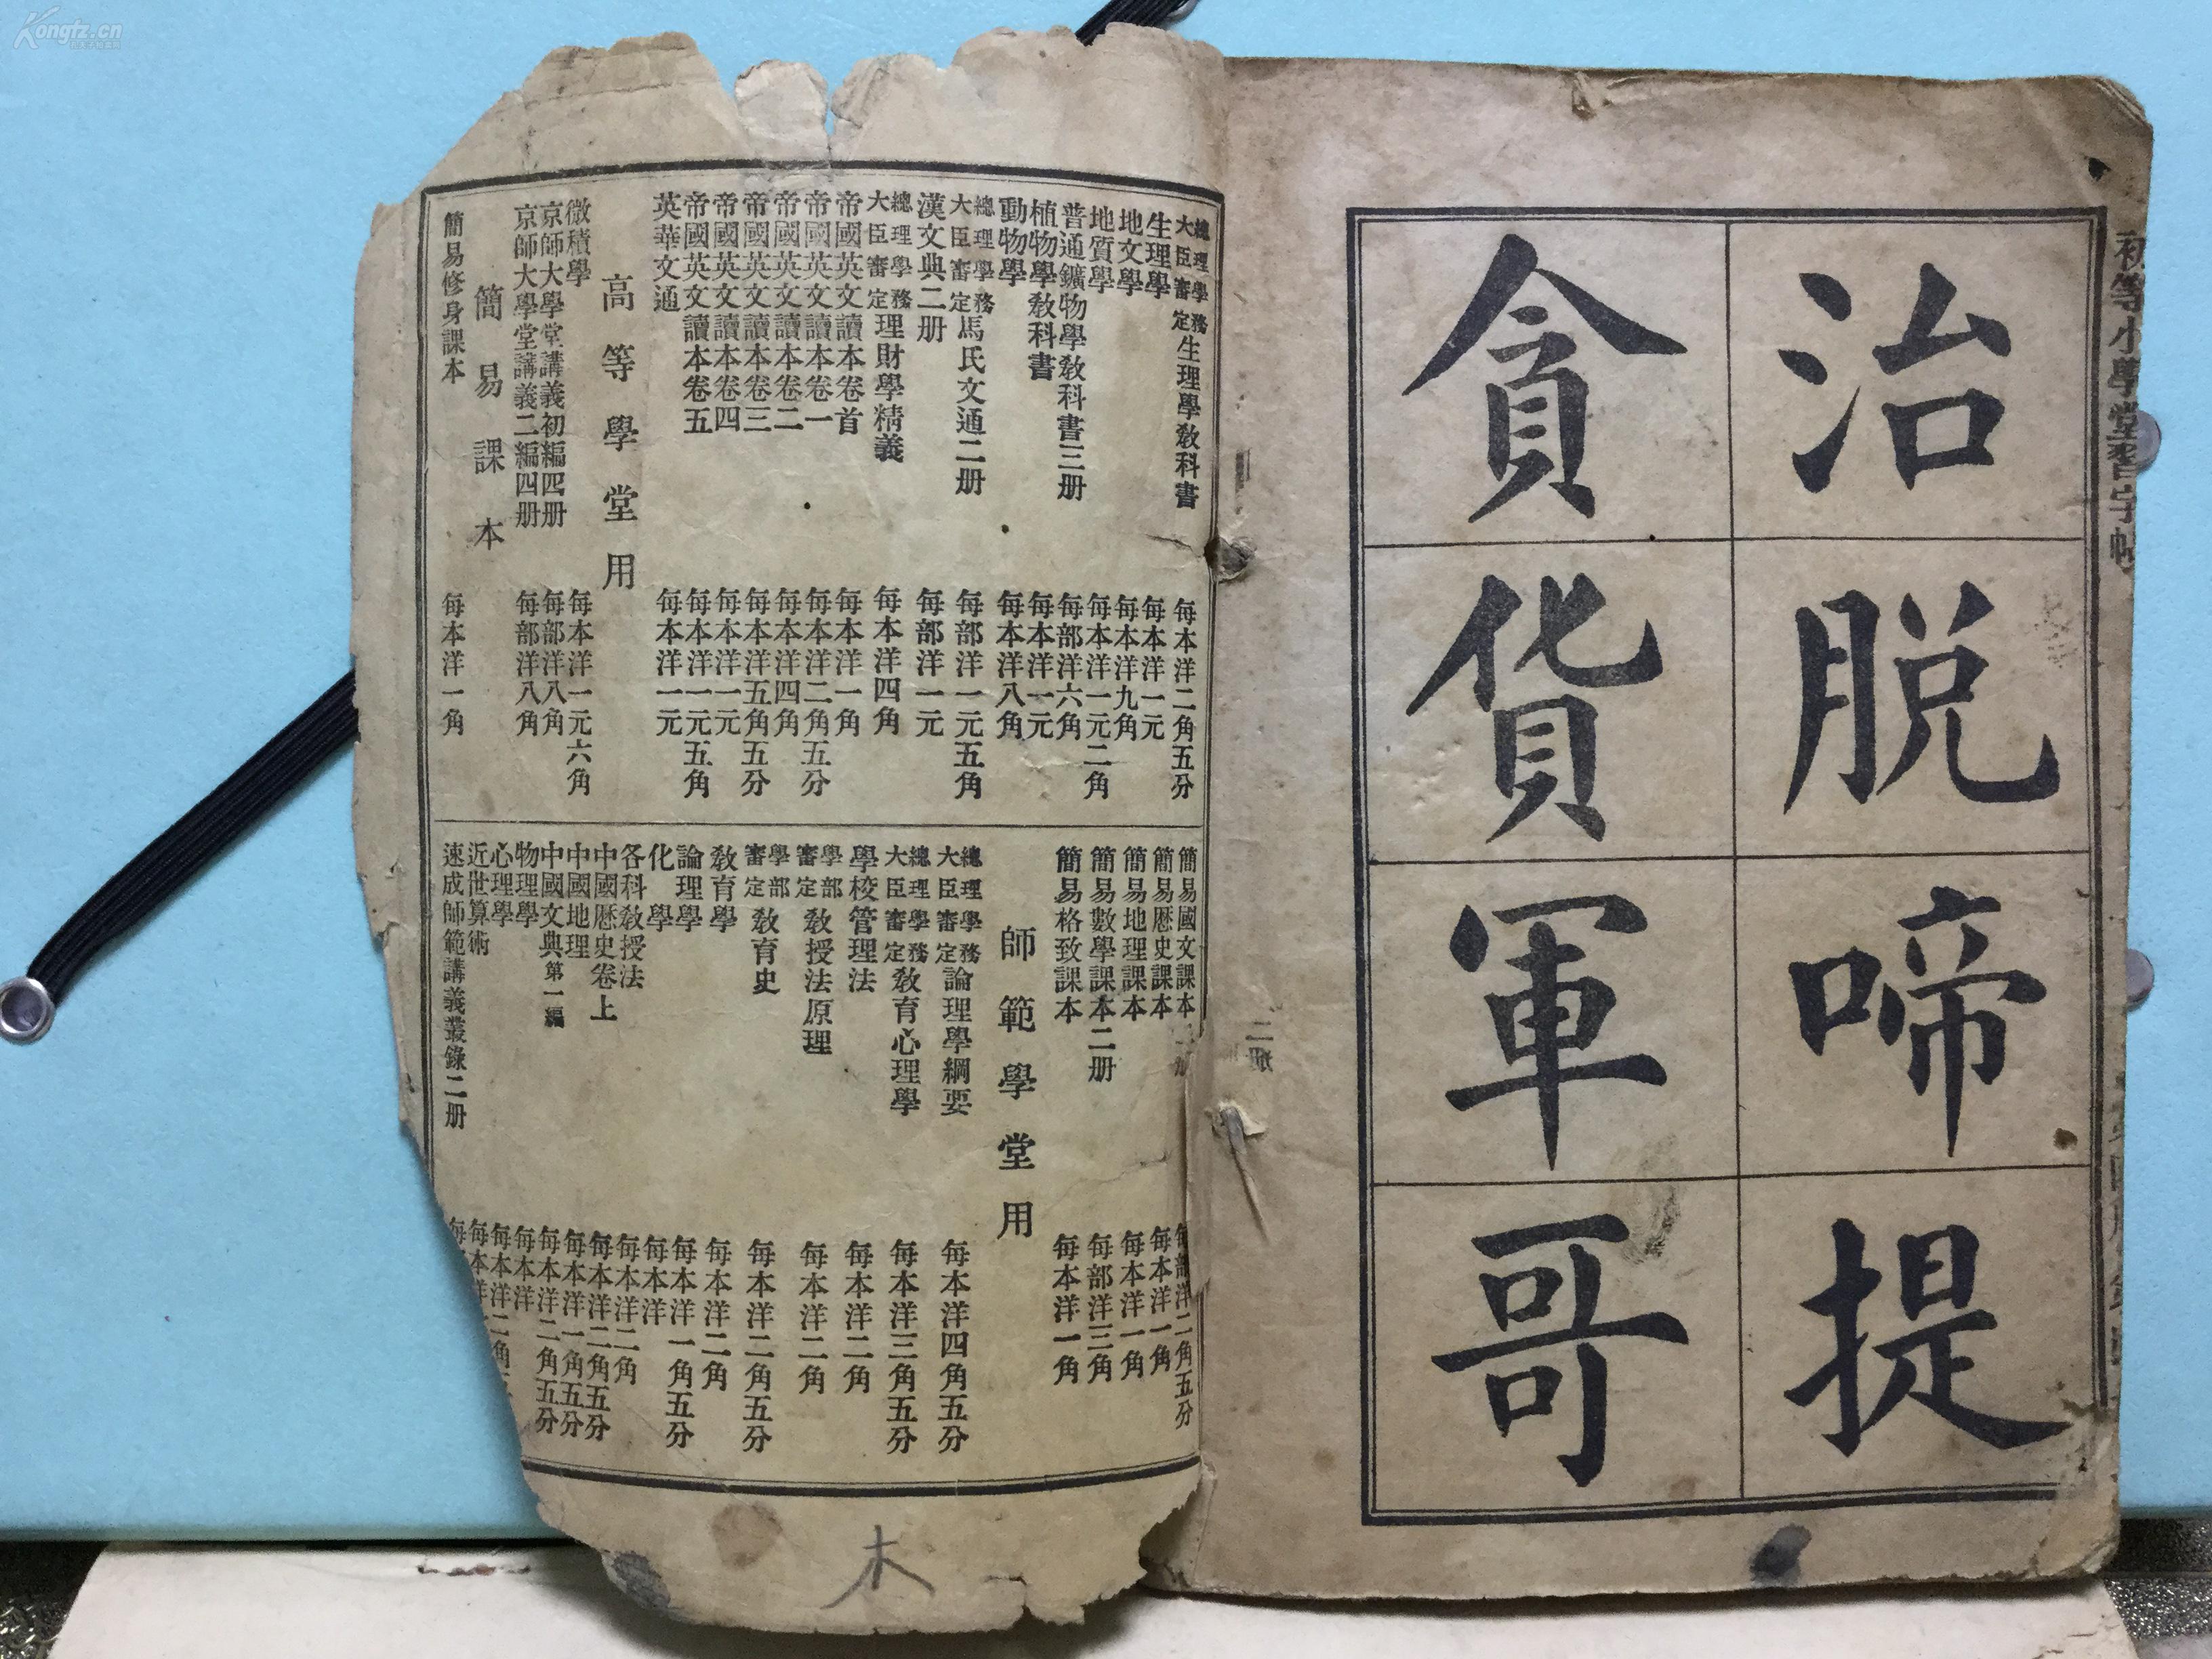 Kongfz.cn
初等小學堂習字帖
治脫啼提
貪貨軍哥
總理學務大臣審定 生理學教科書 每本洋二角五分
生理學 每本洋一元
地文學 每本洋九角
地質學 每本洋一元二角
普通鑛物學教科書三册 每部洋六角
植物學教科書 每本洋一元
動物學 每本洋八角
總理學務大臣審定 馬氏文通二册 每部洋一元五角
漢文典二册 每部洋一元
總理學務大臣審定 理財學精義 每本洋四角
帝國英文讀本卷首 每本洋一角
帝國英文讀本卷一 每本洋二角五分
帝國英文讀本卷二 每本洋四角
帝國英文讀本卷三 每本洋五角五分
帝國英文讀本卷四 每本洋一元
帝國英文讀本卷五 每本洋一元五角
英華文通 每本洋一元
高等學堂用
微積學 每本洋一元六角
京師大學堂講義初編四册 每部洋八角
京師大學堂講義二編四册 每部洋八角
簡易課本
簡易修身課本 每本洋一角
簡易國文課本 每部洋二角五分
簡易歷史課本 每本洋一角
簡易地理課本 每本洋一角
簡易數學課本二册 每部洋三角
簡易格致課本 每本洋一角
師範學堂用
總理學務大臣審定 論理學綱要 每本洋四角五分
總理學務大臣審定 教育心理學 每本洋三角五分
學校管理法 每本洋二角
學部審定 教授法原理 每本洋二角
學部審定 教育史 每本洋二角五分
教育學 每本洋二角
論理學 每本洋一角五分
化學 每本洋
各科教授法 每本洋二角
中國歷史卷上 每本洋二角五分
中國地理 每本洋一角五分
中國文典第一編 每本洋二角五分
物理學 每本洋
心理學 每本洋二角
近世算術 每本洋
速成師範講義叢錄二册 每
木